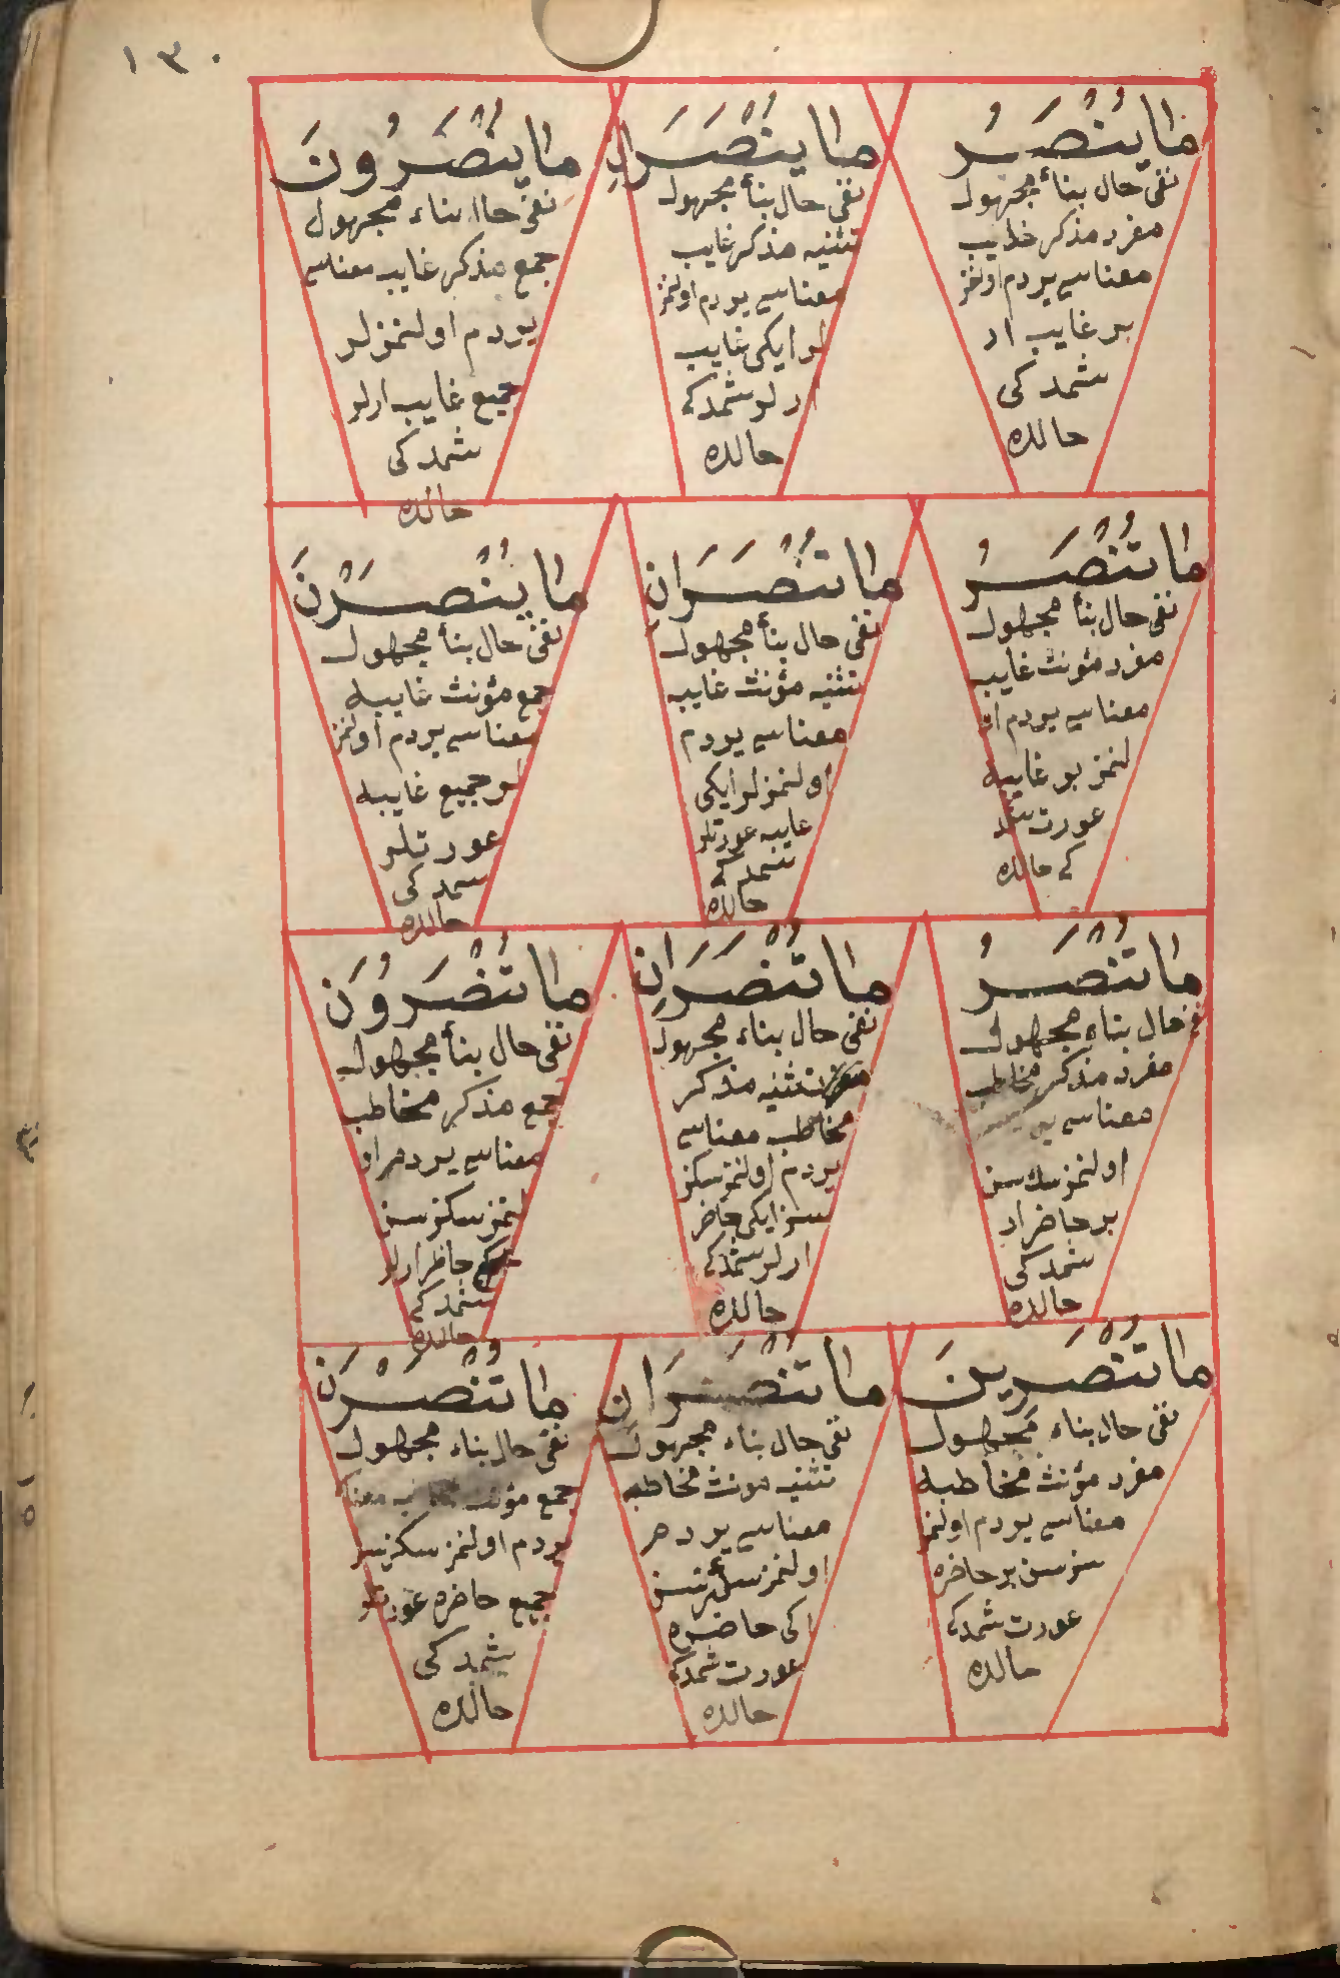 ١٣٠
مَا يُنْصَرُ
نفی حال بنأ مجهول
مفرد مذکر غایب
معناسی یردم اولنمز
بر غایب ار
شمدکی
حالده
مَا يُنْصَرَانِ
نفی حال بنأ مجهول
تثنیه مذکر غایب
معناسی یردم اولنمز
لر ایکی غایب
ار لر شمدکی
حالده
مَا يُنْصَرُونَ
نفی حال بناء مجهول
جمع مذکر غایب معناسی
یردم اولنمزلر
جمیع غایب ارلر
شمدکی
حالده
مَا تُنْصَرُ
نفی حال بنأ مجهول
مفرد مؤنث غایبه
معناسی یردم او
لنمز بر غایبه
عورت شمد
کی حالده
مَا تُنْصَرَانِ
نفی حال بنأ مجهول
تثنیه مؤنث غایبه
معناسی یردم
اولنمزلر ایکی
غایبه عورتلر
شمدکی
حالده
مَا يُنْصَرْنَ
نفی حال بنأ مجهول
جمع مؤنث غایبه
معناسی یردم اولنمز
لر جمیع غایبه
عورتلر
شمدکی
حالده
مَا تُنْصَرُ
نفی حال بناء مجهول
مفرد مذکر مخاطب
معناسی
اولنمزسك سن
بر حاضر ار
شمدکی
حالده
مَا تُنْصَرَانِ
نفی حال بناء مجهول
تثنیه مذکر
مخاطب معناسی
یردم اولنمزسکز
سز ایکی حاضر
ارلر شمدکی
حالده
مَا تُنْصَرُونَ
نفی حال بنأ مجهول
جمع مذکر مخاطب
معناسی یردم او
لنمزسکز سز
جمیع حاظر ارلر
شمدکی
حالده
مَا تُنْصَرِينَ
نفی حال بناء مجهول
مفرد مؤنث مخاطبه
معناسی یردم اولنمز
سز سن بر حاضره
عورت شمدکی
حالده
مَا تُنْصَرَانِ
نفی حال بناء مجهول
تثنیه مونث مخاطبه
معناسی یردم
اولنمز
اکی حاضره
عورت شمدکی
حالده
مَا تُنْصَرْنَ
نفی حال بناء مجهول
جمع مؤنث
یردم اولنمزسکز سز
جمیع حاضره عورتلر
شمدکی
حالده